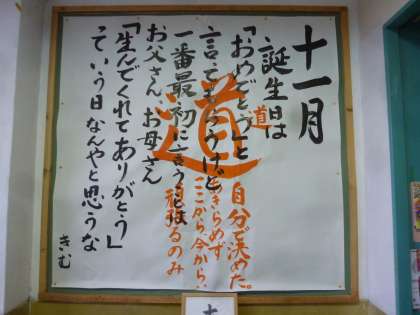 十一月
誕生日は
「おめでとう」と
言ってもらうけど
一番最初に言うことは
お父さん お母さん
「生んでくれてありがとう」
ていう日なんやと思うな
きむ
道
道
自分で決めた。
あきらめず
ここから、今から、
頑張るのみ
十